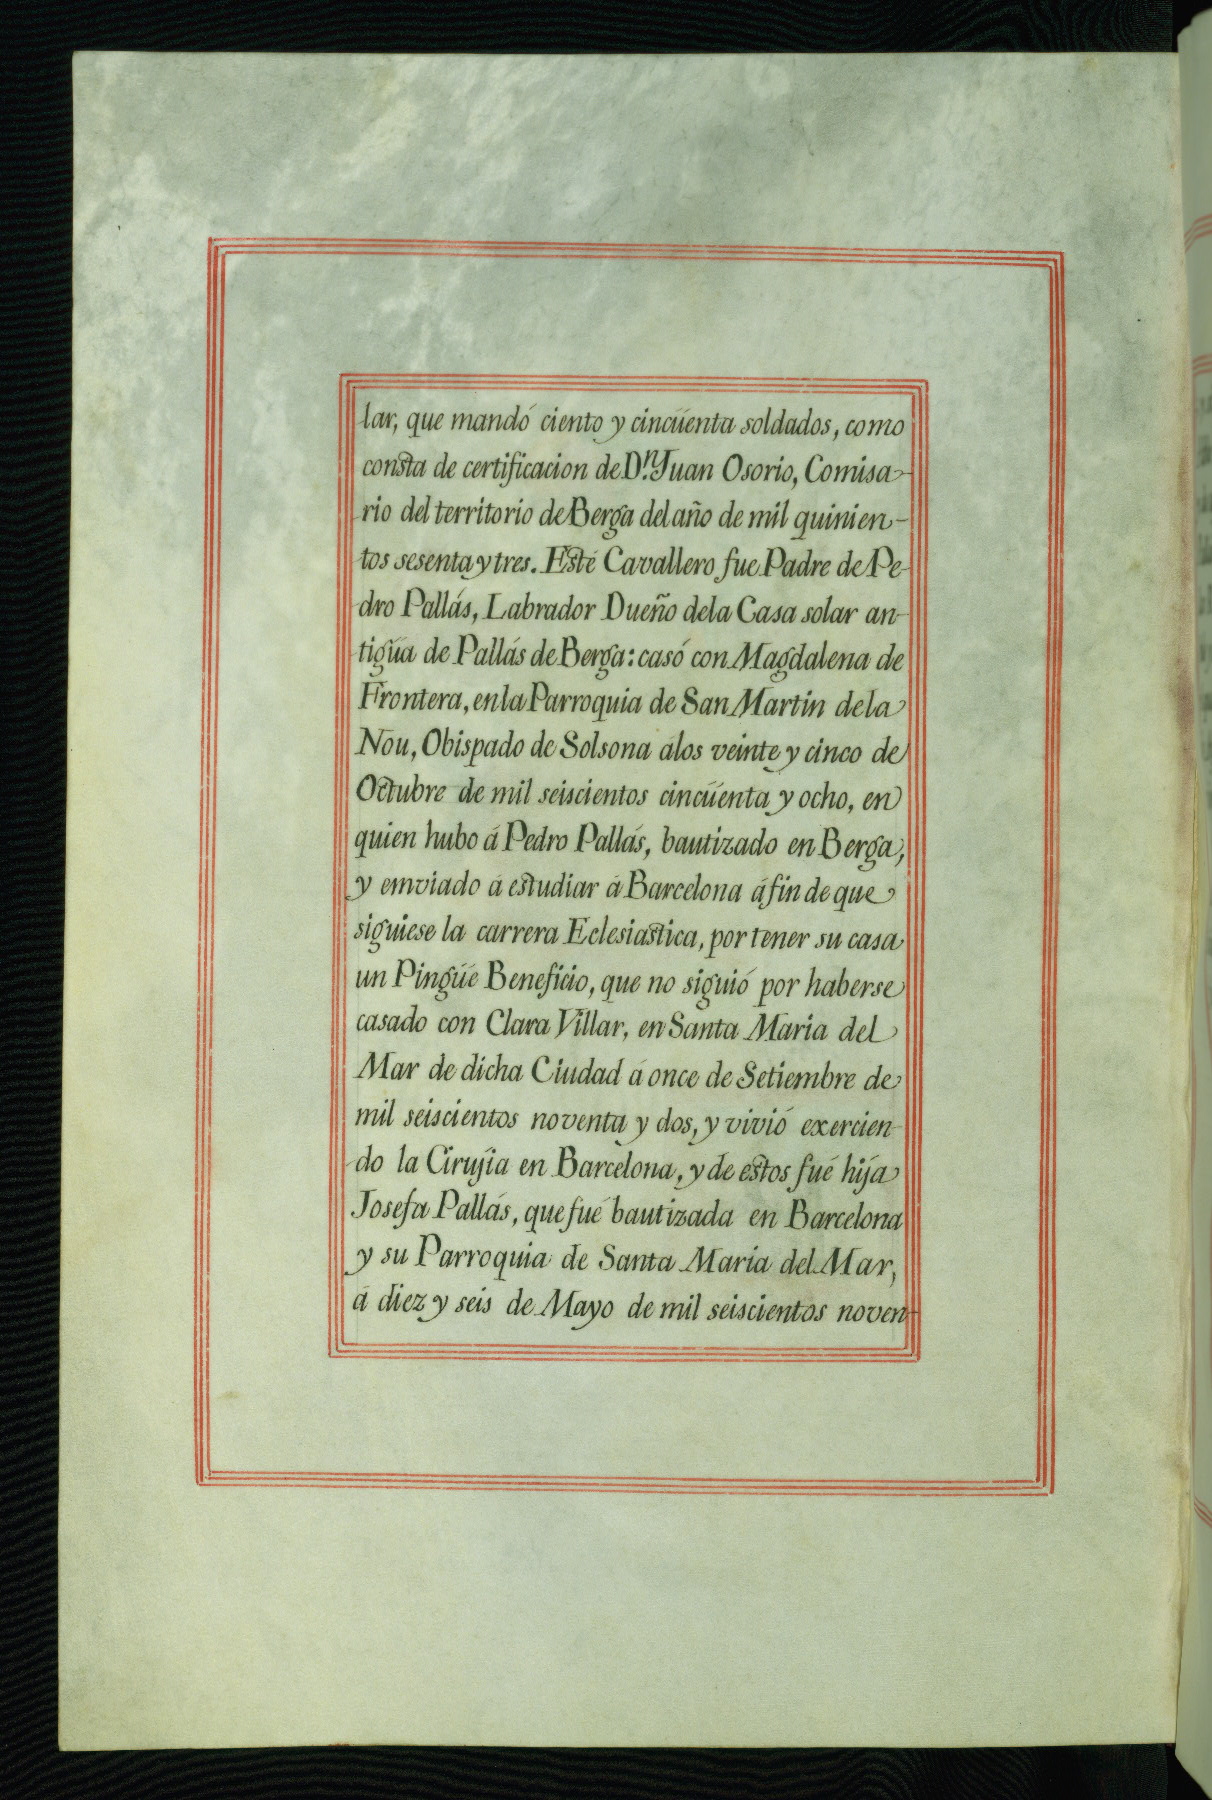 lar, que mandó ciento y cincüenta soldados, como
consta de certificacion de D.ⁿ Juan Osorio, Comisa-
rio del territorio de Berga del año de mil quinien-
tos sesenta y tres. Esté Cavallero fue Padre de Pe-
dro Pallás, Labrador Dueño dela Casa solar an-
tigüa de Pallás de Berga: casó con Magdalena de
Frontera, enla Parroquia de San Martin dela
Nou, Obispado de Solsona álos veinte y cinco de
Octubre de mil seiscientos cincüenta y ocho, en
quien hubo á Pedro Pallás, bautizado en Berga,
y emviado á estudiar á Barcelona áfin de que
siguiese la carrera Eclesiastica, por tener su casa
un Pingüe Beneficio, que no siguió por haberse
casado con Clara Villar, en Santa Maria del
Mar de dicha Ciudad á once de Setiembre de
mil seiscientos noventa y dos, y vivió exercien-
do la Cirujía en Barcelona, y de estos fué hija
Josefa Pallás, que fué bautizada en Barcelona
y su Parroquia de Santa Maria del Mar,
á diez y seis de Mayo de mil seiscientos noven-